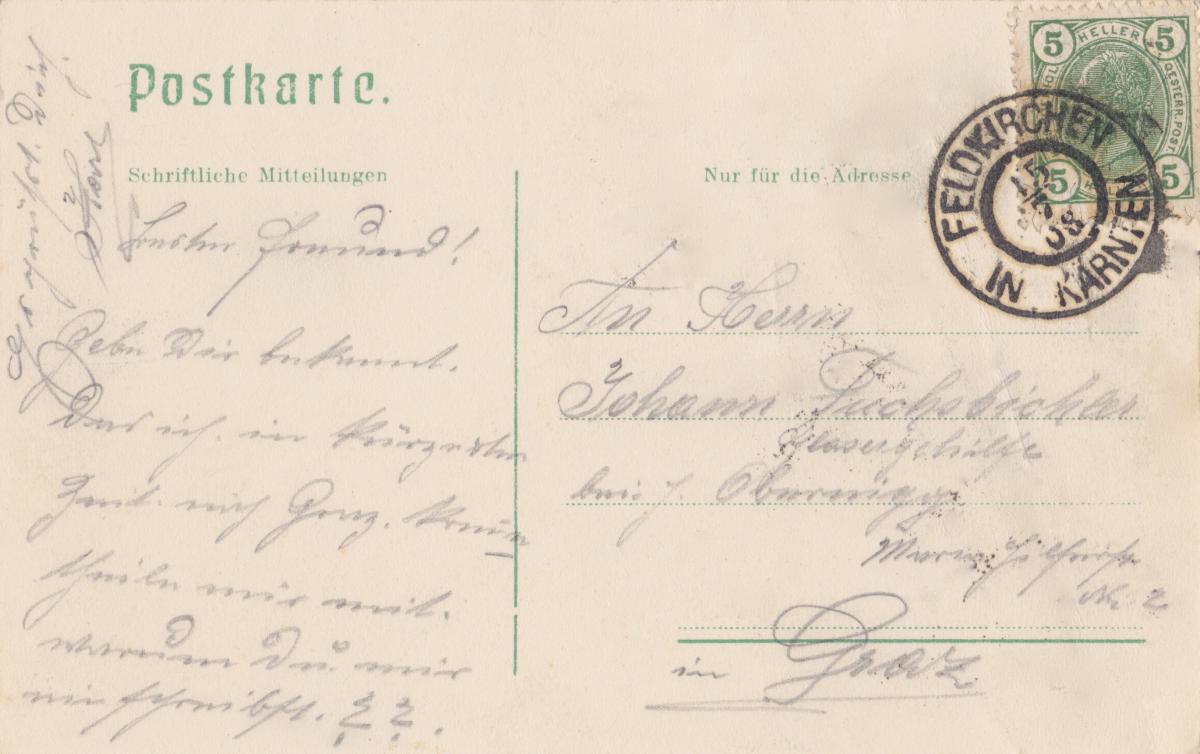 Postkarte.
Schriftliche Mitteilungen
Nur für die Adresse
5 HELLER 5
OESTERR.POST.
5 5
FELDKIRCHEN
IN KÄRNTEN
Freund!
Gebe Dir bekannt.
Das ich. in kürzester
Zeit. nach Graz. komm
theile mir mit.
warum Du. mir
nie schreibst. ? ? .
An Herrn
Johann Fuchsbichler
Glasergehilfe
bei J.
Nr. 2
in Graz